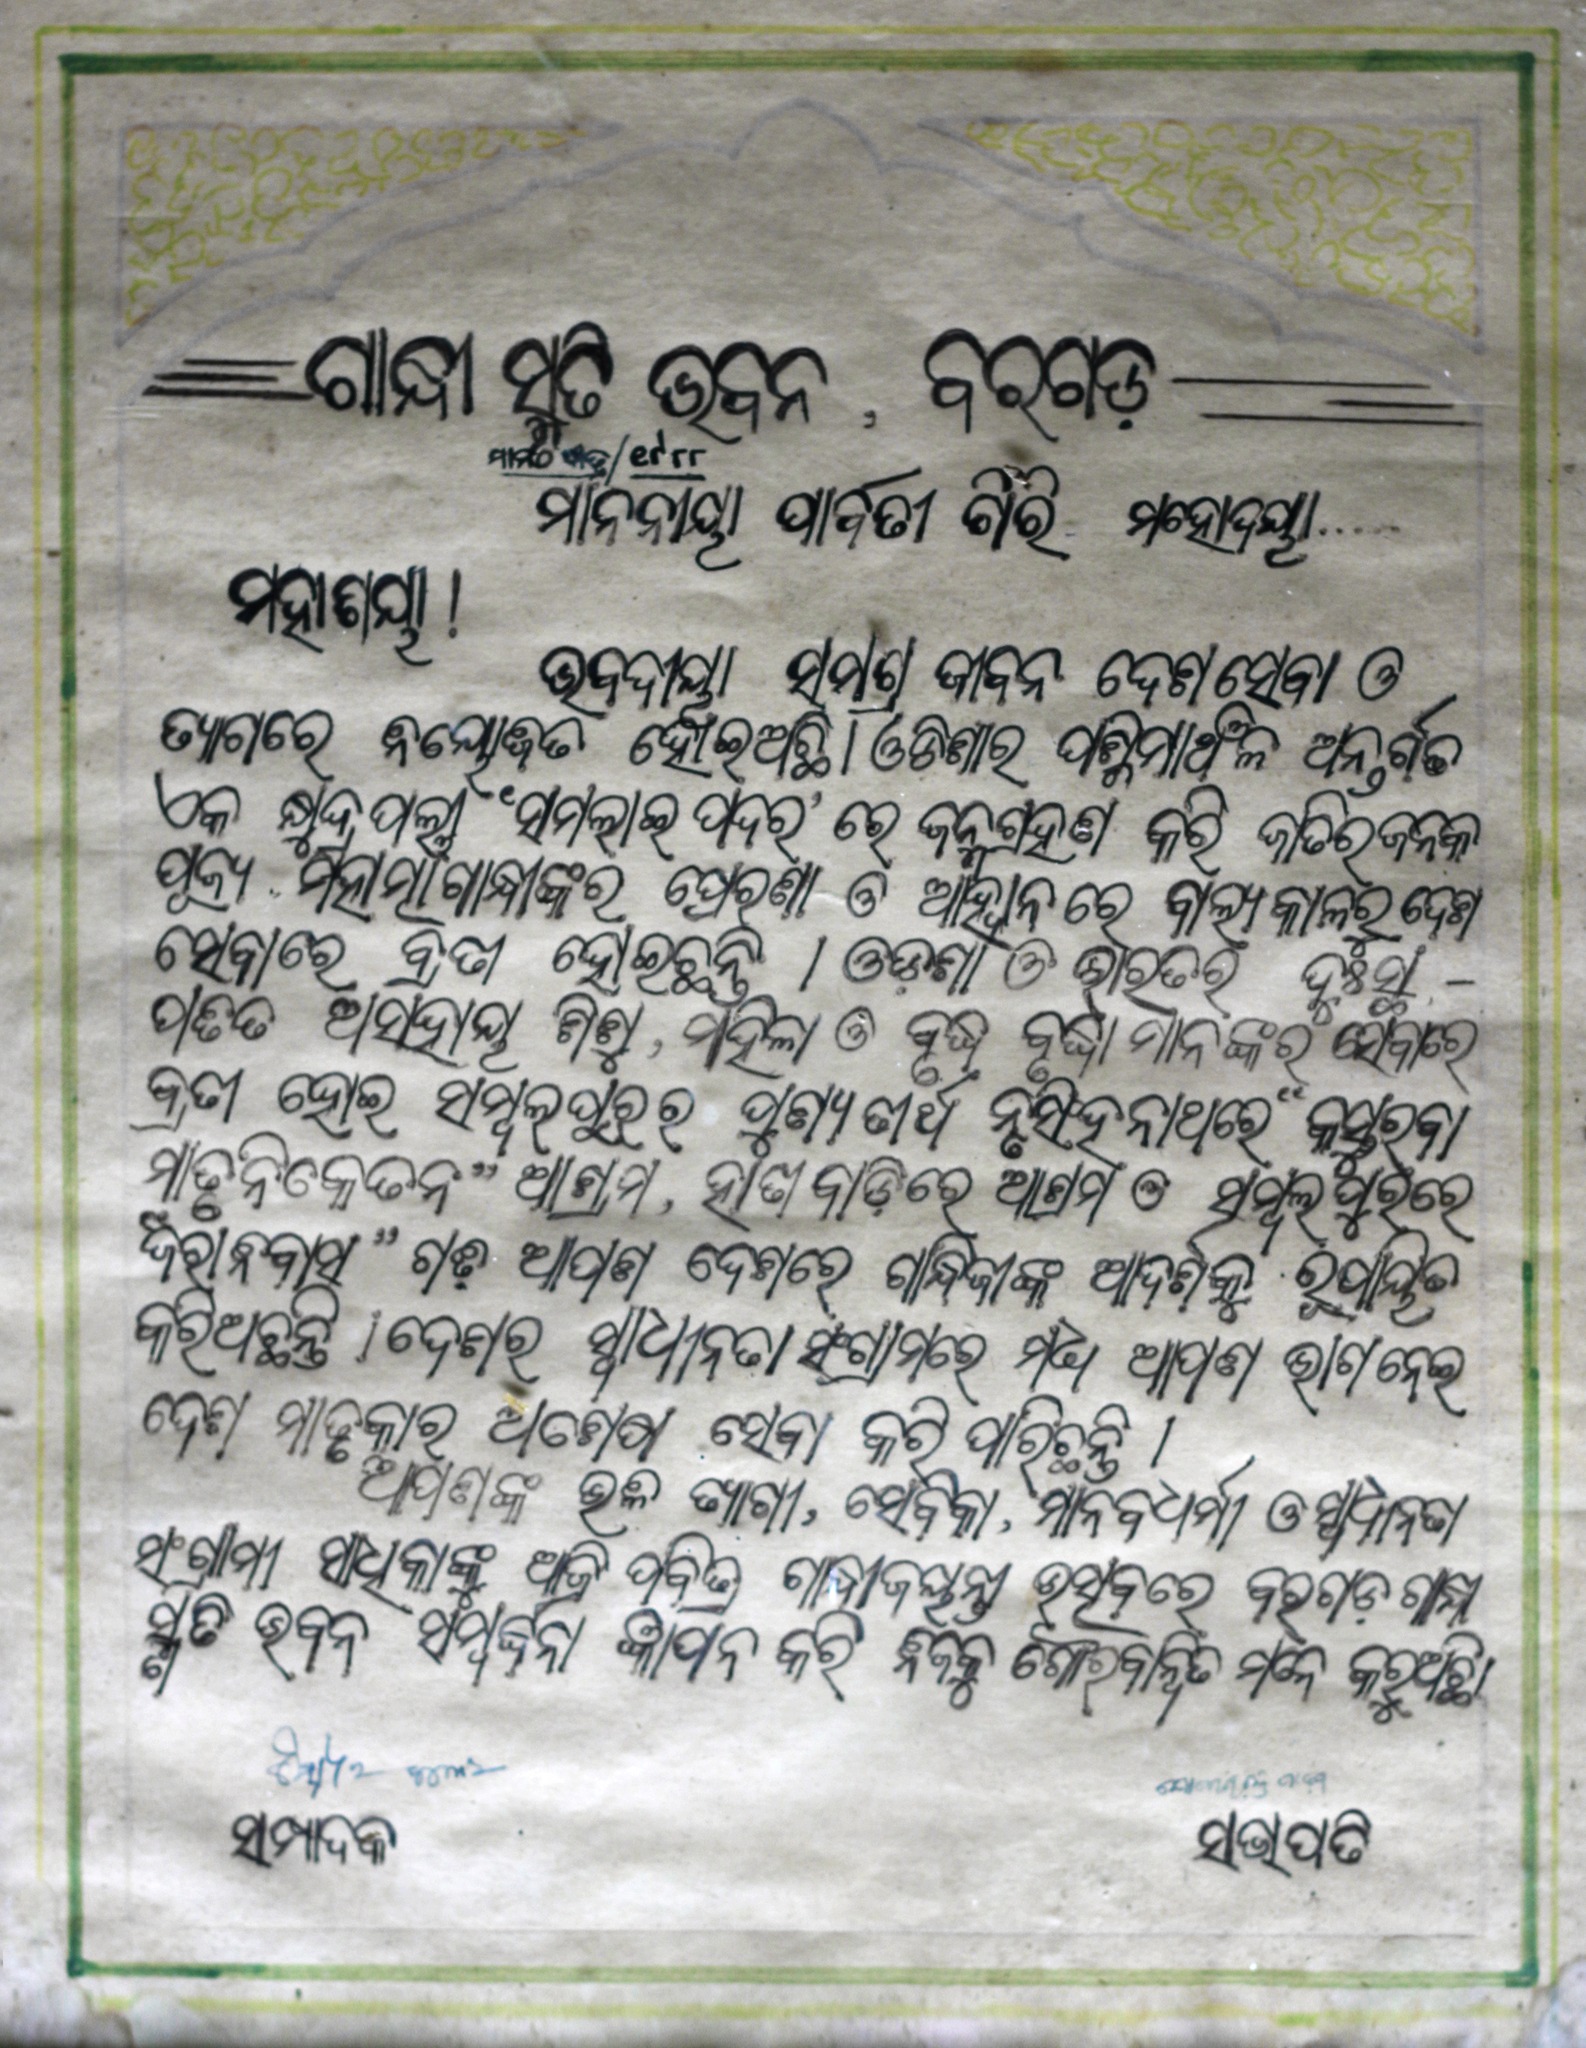 ଗାନ୍ଧୀ ସ୍ମୃତି ଭବନ, ବରଗଡ଼
ମାନପତ୍ର/୧୯୮୮
ମାନନୀୟା ପାର୍ବତୀ ଗିରି ମହୋଦୟା.....
ମହାଶୟା !
ଭବଦୀୟା ସମଗ୍ର ଜୀବନ ଦେଶସେବା ଓ
ତ୍ୟାଗରେ ନିୟୋଜିତ ହୋଇଅଛି। ଓଡିଶାର ପଶ୍ଚିମାଞ୍ଚଳ ଅନ୍ତର୍ଗତ
ଏକ କ୍ଷୁଦ୍ର ପଲ୍ଲୀ ‘ସମଲାଇ ପଦର’ ରେ ଜନ୍ମଗ୍ରହଣ କରି ଜାତିର ଜନକ
ପୂଜ୍ୟ ମହାତ୍ମାଗାନ୍ଧୀଙ୍କର ପ୍ରେରଣା ଓ ଆହ୍ୱାନ ରେ ବାଲ୍ୟକାଳରୁ ଦେଶ
ସେବାରେ ବ୍ରତୀ ହୋଇଛନ୍ତି । ଓଡ଼ିଶା ଓ ଭାରତର ଦୁଃସ୍ଥ -
ପତିତ ଅସହାୟ ଶିଶୁ, ମହିଳା ଓ ବୃଦ୍ଧ ବୃଦ୍ଧାମାନଙ୍କର ସେବାରେ
ବ୍ରତୀ ହୋଇ ସମ୍ବଲପୁରର ପୁଣ୍ୟତୀର୍ଥ ନୃସିଂହନାଥରେ “କସ୍ତୁରବା
ମାତୃନିକେତନ” ଆଶ୍ରମ, ହାତୀବାଡ଼ିରେ ଆଶ୍ରମ ଓ ସମ୍ବଲପୁରରେ
ଜିରାନିବାସ” ଗଢ଼ି ଆପଣ ଦେଶରେ ଗାନ୍ଧିଜୀଙ୍କ ଆଦର୍ଶକୁ ରୂପାୟିତ
କରିଅଛନ୍ତି । ଦେଶର ସ୍ୱାଧୀନତା ସଂଗ୍ରାମରେ ମଧ୍ୟ ଆପଣ ଭାଗ ନେଇ
ଦେଶ ମାତୃକାର ଅଶେଷ ସେବା କରି ପାରିଛନ୍ତି ।
ଆପଣଙ୍କ ଭଳି ତ୍ୟାଗୀ, ସେବିକା, ମାନବଧର୍ମୀ ଓ ସ୍ୱାଧୀନତା
ସଂଗ୍ରାମୀ ସାଧିକାଙ୍କୁ ଆଜି ପବିତ୍ର ଗାନ୍ଧୀଜୟନ୍ତୀ ଉତ୍ସବରେ ବରଗଡ଼ ଗାନ୍ଧୀ
ସ୍ମୃତି ଭବନ ସମ୍ବର୍ଦ୍ଧନା ଜ୍ଞାପନ କରି ନିଜକୁ ଗୌରବାନ୍ୱିତ ମନେ କରୁଅଛି।
ସମ୍ପାଦକ
ସଭାପତି